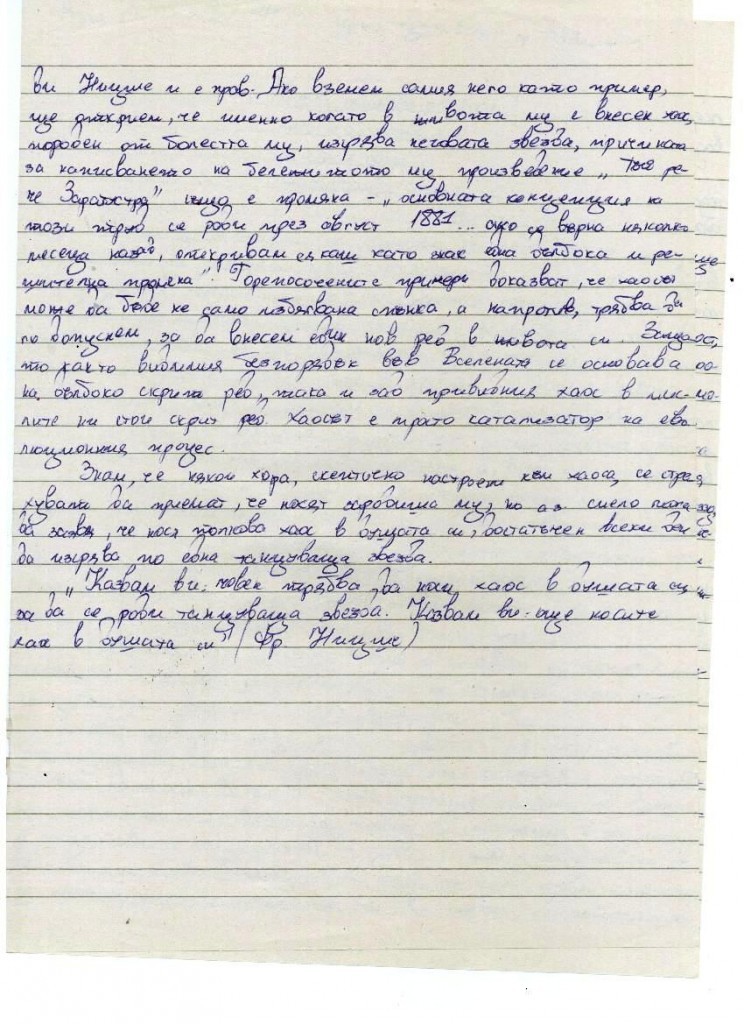 ви Ницше и е прав. Ако вземем самия него като пример,
ще открием, че именно когато в живота му е внесен хаос,
породен от болестта му, изгрява неговата звезда, причината
за написването на бележитото му произведение „Тъй ре-
че Заратустра" също е промяна - „основната концепция на
този труд се роди през август 1881... ако се върна няколко
месеца назад, откривам си като знак една дълбока и ре-
шителна промяна". Горепосочените примери доказват, че хаосът
може да бъде не само избягвана спънка, а напротив, трябва да
го допускаме, за да внесем един нов ред в живота си. Защото,
то както видимия безпорядък във Вселената се основава
на дълбоко скрит ред, така и зад привидния хаос в мис-
лите ни стои скрит ред. Хаосът е просто катализатор на ево-
люционния процес.
Знам, че някои хора, скептично настроени към хаоса, се стра-
хуват да приемат, че носят зародиша му, но аз смело мога
да заявя, че нося толкова хаос в душата си, достатъчен всеки ден
да изгрява по една танцуваща звезда.
„Казвам ви: човек трябва да носи хаос в душата си,
за да се роди танцуваща звезда. Казвам ви: още носите
хаос в душата си" (Фр. Ницше)